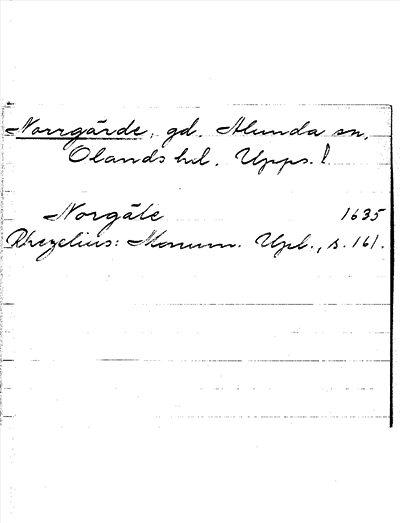 Norrgärde, gd. Alunda sn,
Olands hd. Upps. l.
Norgåle 1635
Rhezelius: Monum. Upl., s. 161.